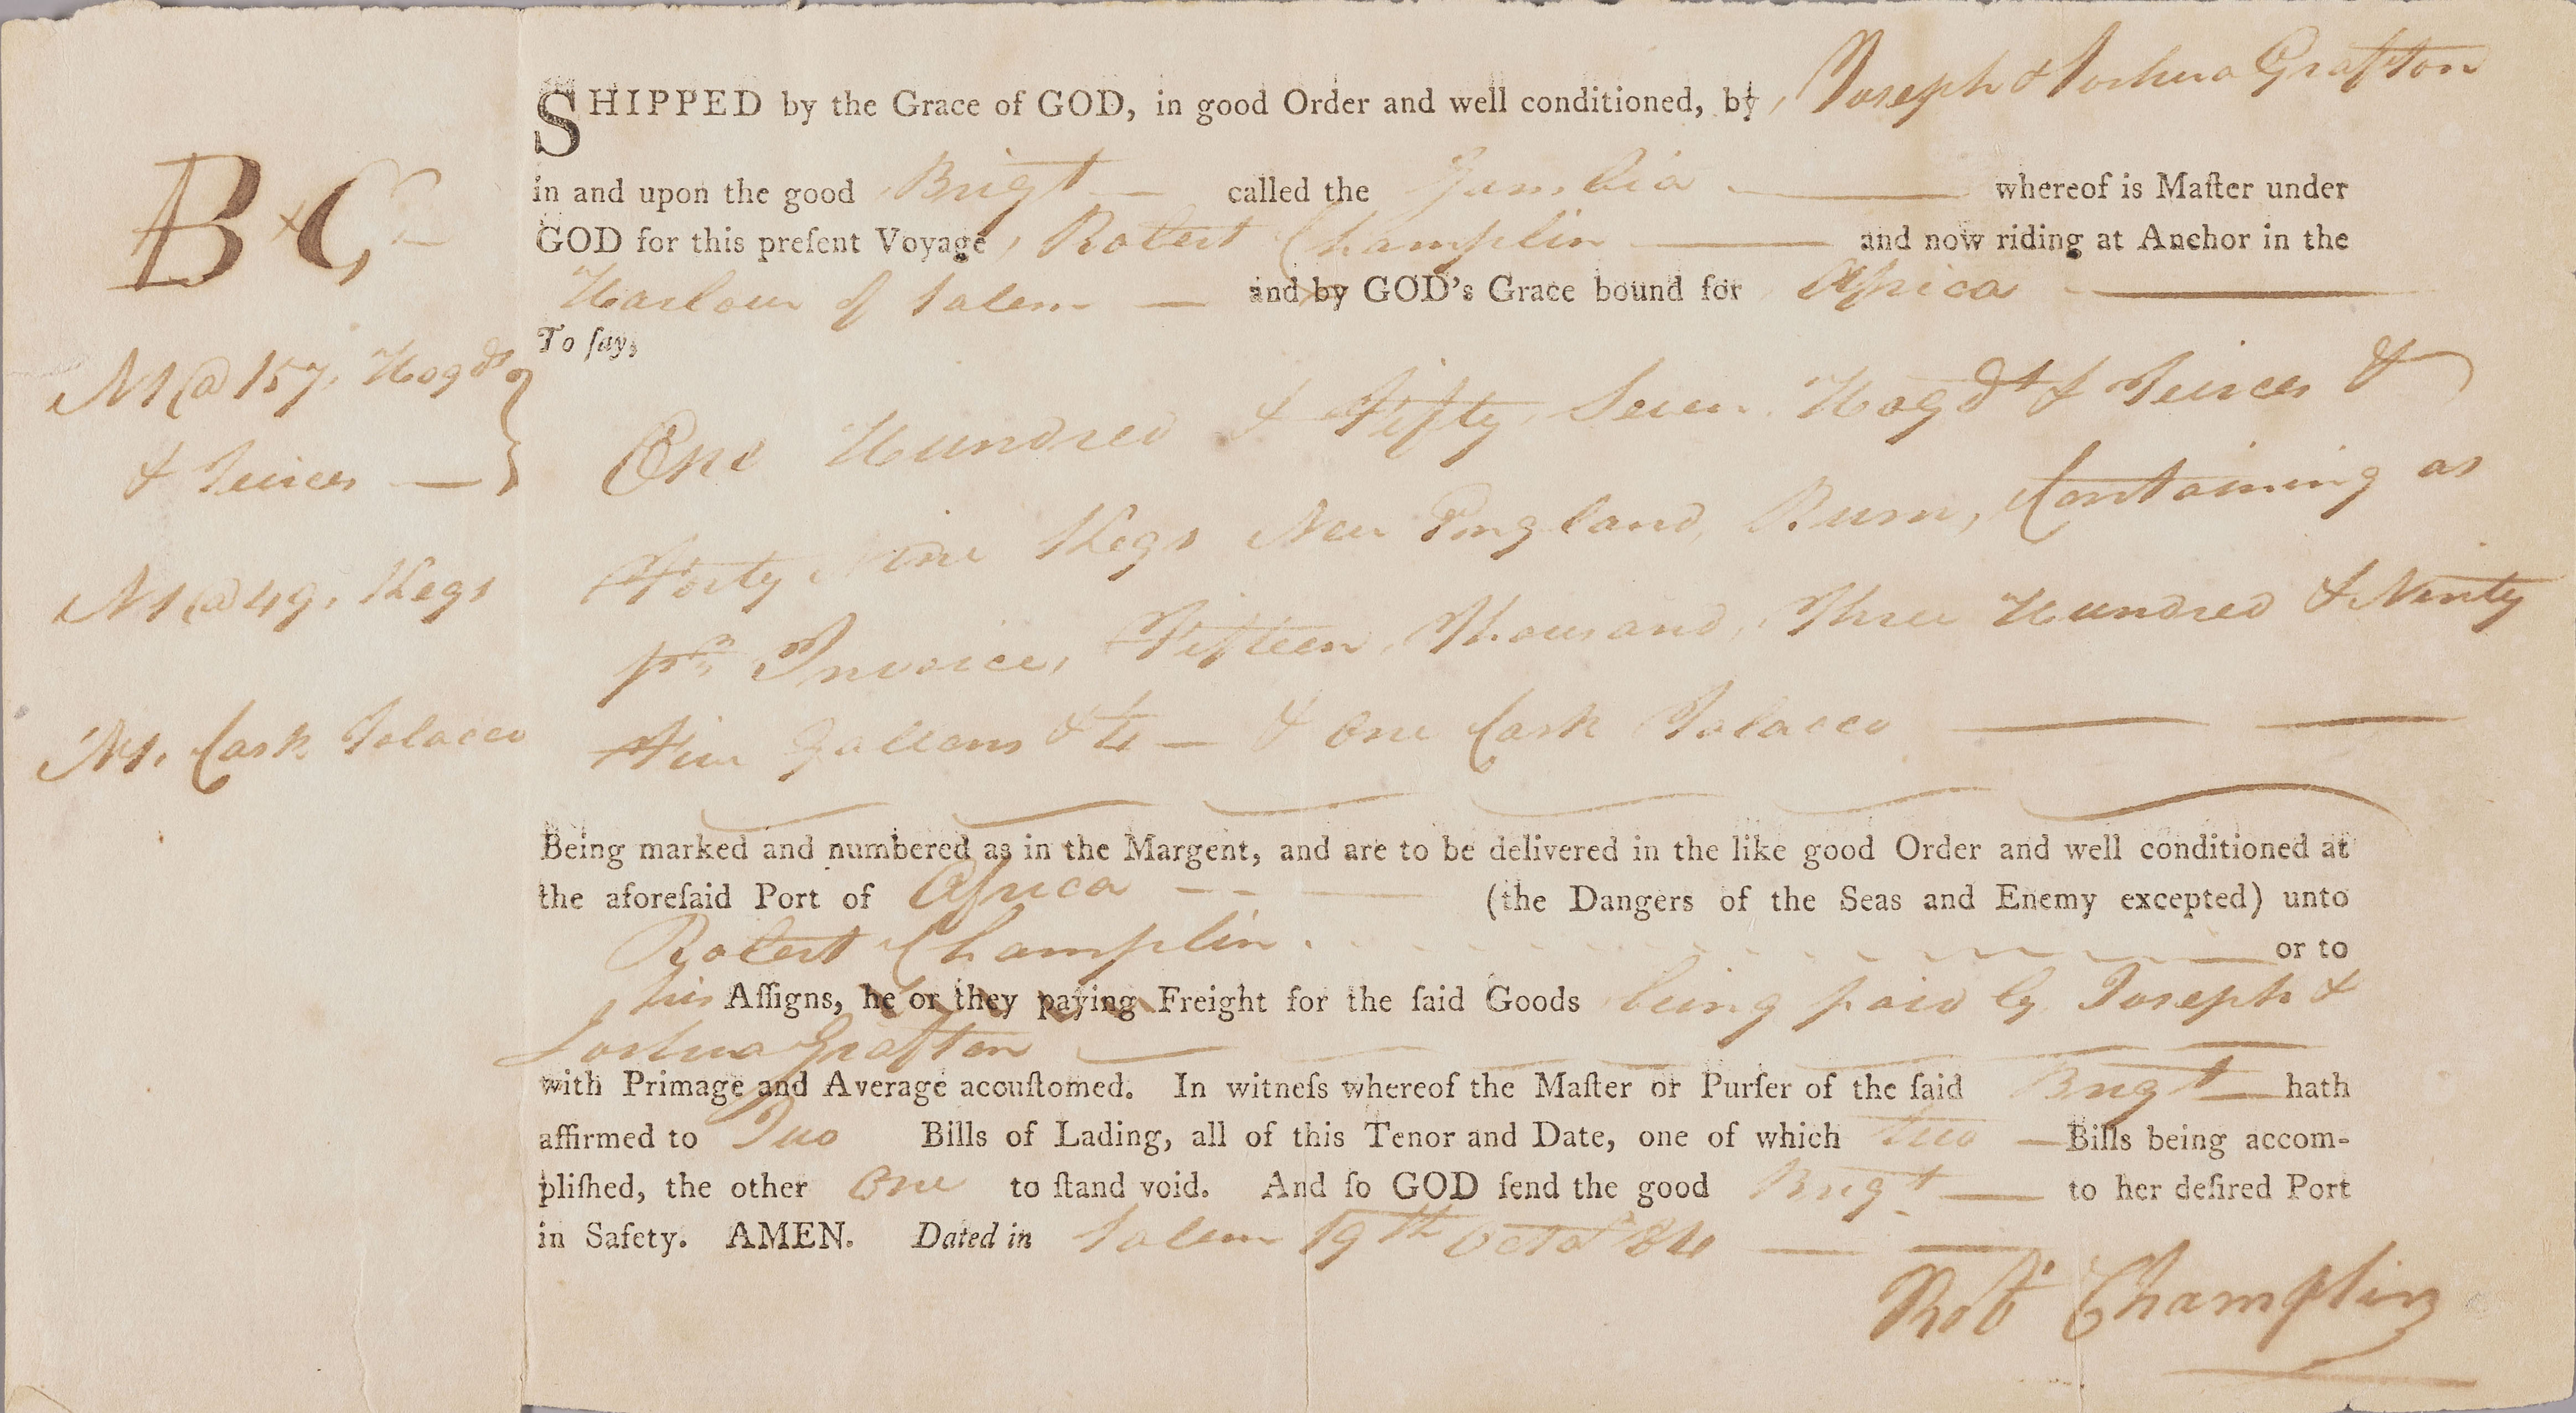 SHIPPED by the Grace of GOD, in good Order and well conditioned, by Joseph & Joshua Grafton
in and upon the good Brigt called the Gambia whereof is Maſter under
GOD for this preſent Voyage, Robert Champlin and now riding at Anchor in the
Harbour of Salem and by GOD's Grace bound for Africa
To ſay,
B & C
N1@157, Hogds
& Teirces
One Hundred & Fifty Seven Hogds & Teirces &
Forty Nine Kegs New England Rum, Containing as
N1@49, Kegs
pr Invoice, Fifteen Thousand, Three Hundred & Ninty
N1. Cask Tobacco
Five Gallons & ¼ & One Cask Tobacco
Being marked and numbered as in the Margent, and are to be delivered in the like good Order and well conditioned at
the aforeſaid Port of Africa (the Dangers of the Seas and Enemy excepted) unto
Robert Champlin or to
his Aſſigns, he or they paying Freight for the ſaid Goods being paid by Joseph &
Joshua Grafton
with Primage and Average accuſtomed. In witneſs whereof the Maſter or Purſer of the ſaid Brigt hath
affirmed to Two Bills of Lading, all of this Tenor and Date, one of which two Bills being accom-
pliſhed, the other One to ſtand void. And ſo GOD ſend the good Brigt to her deſired Port
in Safety. AMEN. Dated in Salem 19th Octor 84
Robt Champlin